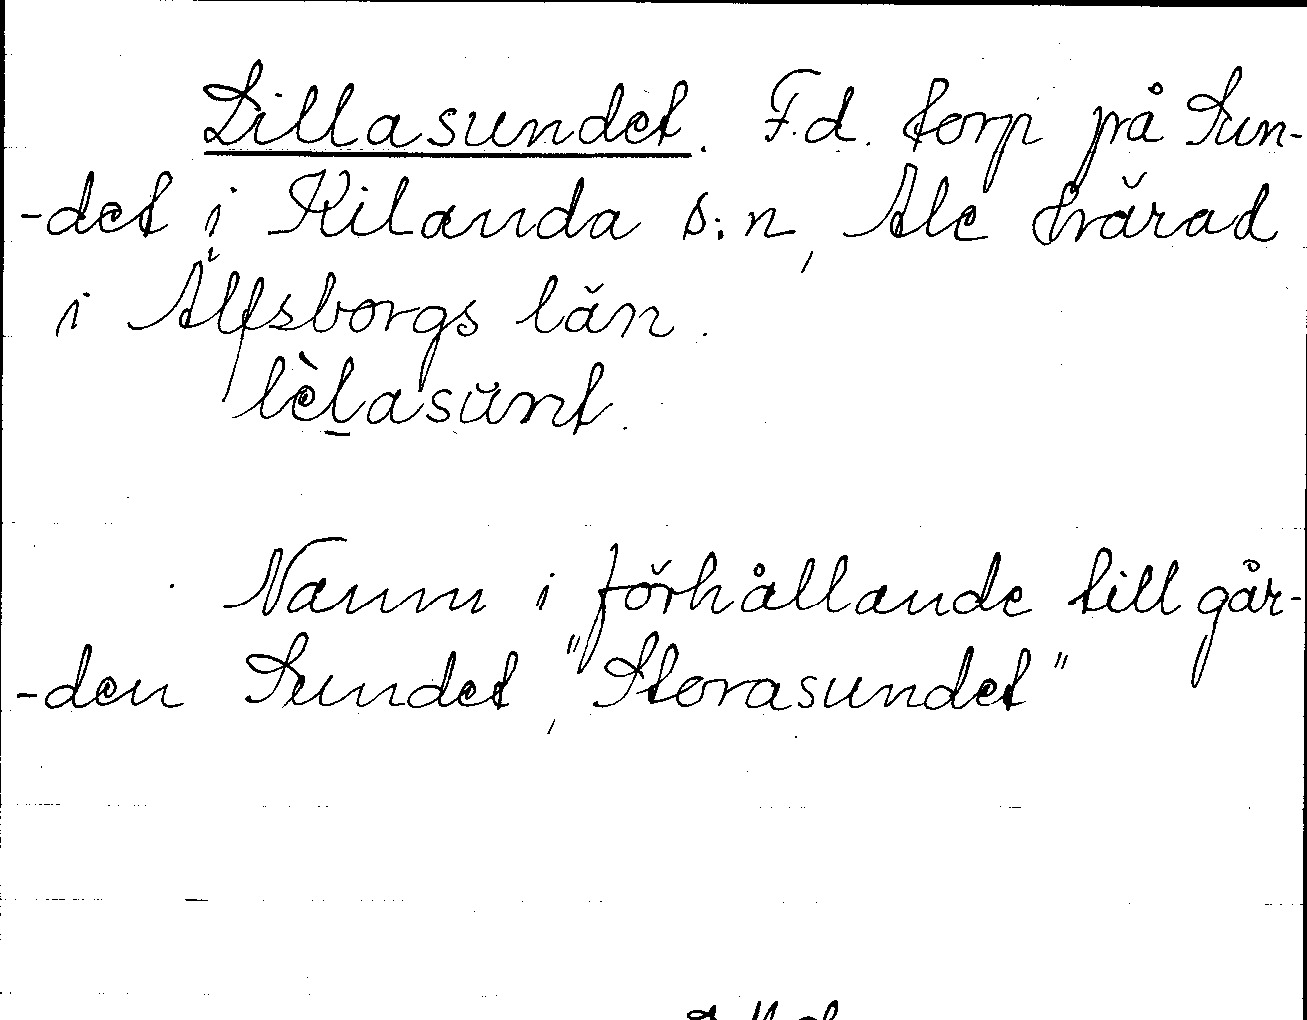 Lillasundet. F.d. torp på Sun-
-det i Kilanda s:n, Ale härad
i Älfsborgs län.
lèlasŭnt.
Namn i förhållande till går-
-den Sundet, "Storasundet"